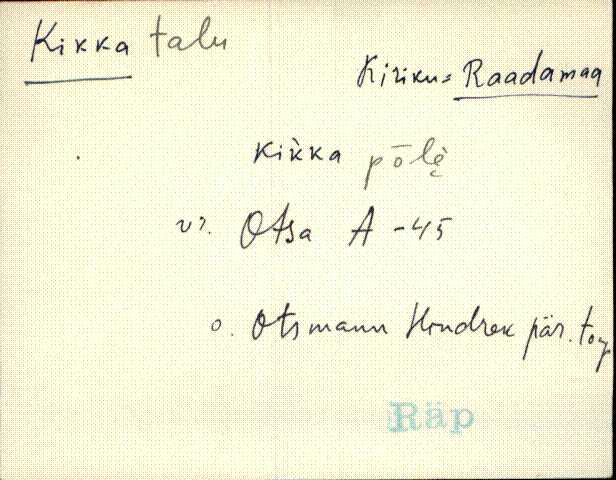 Kikka talu
Kiriku= Raadamaa
Kik̀ka pōlè̬
vr. Otsa A -45
o. Otsmann Hindrek pär. toy
Räp